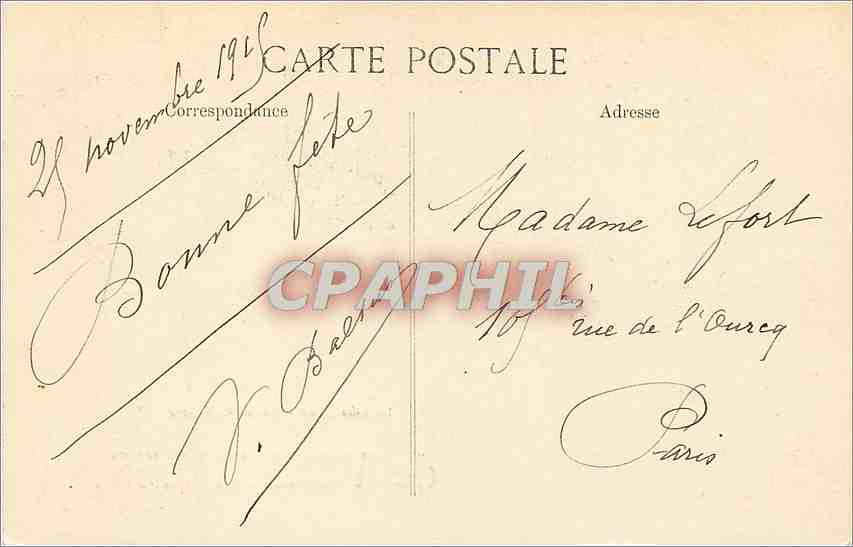 CARTE POSTALE
Correspondance
Adresse
25 novembre 1915
Bonne fête
V.
Madame Lefort
105 bis rue de l'Ourcq
Paris
CPAPHIL